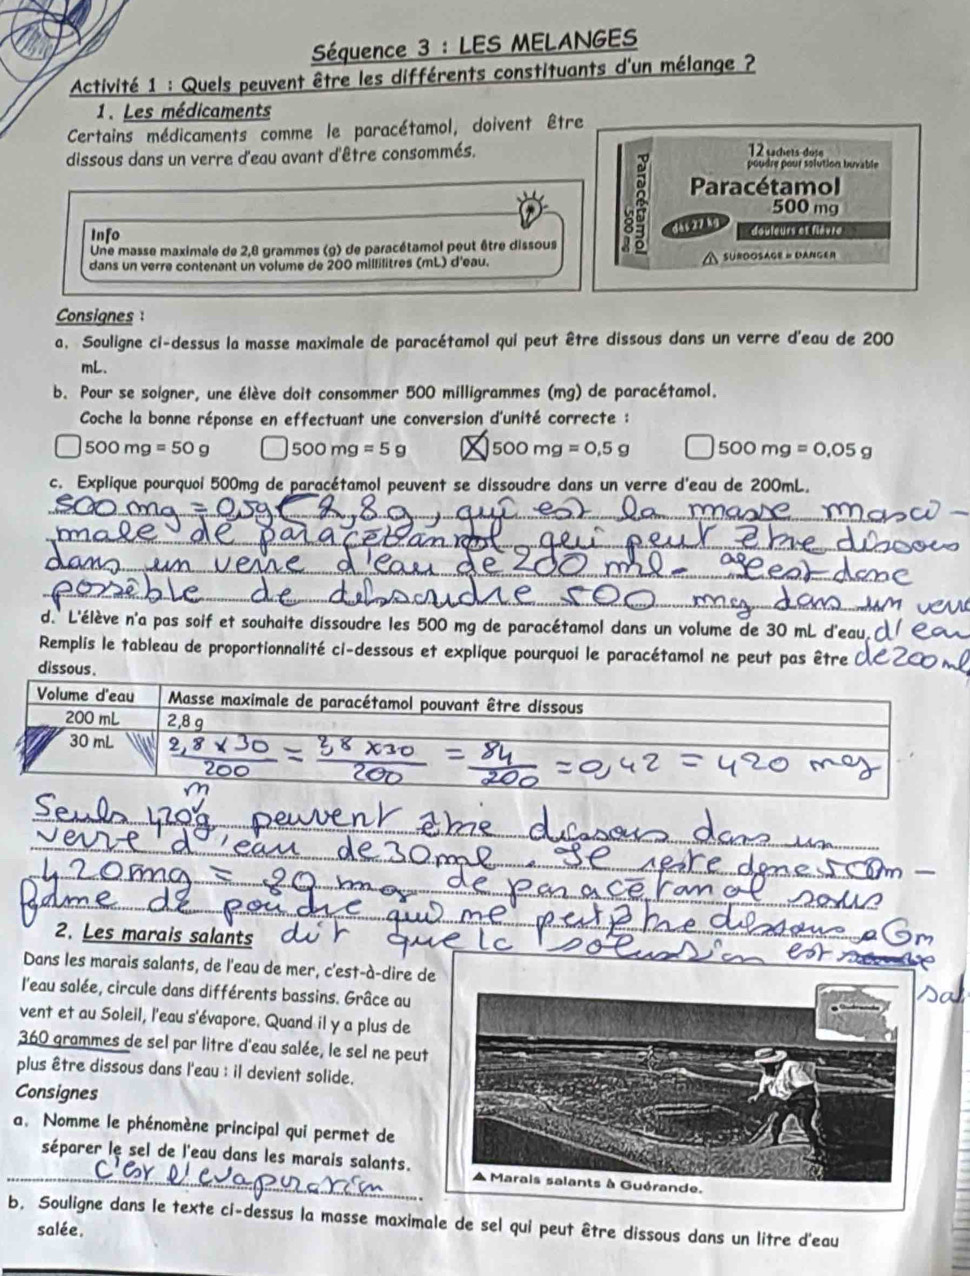 Séquence 3 : LES MELANGES
Activité 1 : Quels peuvent être les différents constituants d'un mélange ?
1. Les médicaments
Certains médicaments comme le paracétamol, doivent être
dissous dans un verre d'eau avant d'être consommés.
Info
Une masse maximale de 2,8 grammes (g) de paracétamol peut être dissous
dans un verre contenant un volume de 200 millilitres (mL) d'eau.
Paracétamol
500 mg
12 sachets-dose
poudre pour solution buvable
Paracétamol
500 mg
dès 27 kg
douleurs et fièvre
SURDOSAGE = DANGER
Consignes :
a. Souligne ci-dessus la masse maximale de paracétamol qui peut être dissous dans un verre d'eau de 200
mL.
b. Pour se soigner, une élève doit consommer 500 milligrammes (mg) de paracétamol.
Coche la bonne réponse en effectuant une conversion d'unité correcte :
500 mg = 50 g 500 mg = 5 g X 500 mg = 0,5 g 500 mg = 0,05 g
c. Explique pourquoi 500mg de paracétamol peuvent se dissoudre dans un verre d'eau de 200mL.
500 mg = 0,5g < 2,8 g, qui est la masse maxi-
male de paracétamol qui peut être dissous
dans un verre d'eau de 200 ml. est donc
possible de dissoudre 500 mg dans un verre
d'eau
de 200 ml
d. L'élève n'a pas soif et souhaite dissoudre les 500 mg de paracétamol dans un volume de 30 mL d'eau.
Remplis le tableau de proportionnalité ci-dessous et explique pourquoi le paracétamol ne peut pas être
dissous.
Volume d'eau Masse maximale de paracétamol pouvant être dissous
200 mL 2,8 g
30 mL 2,8 x 30 / 200 = 2,8 x 30 / 200 = 84 / 200 = 0,42 = 420 mg
Seuls 420 mg peuvent être dissous dans un
verre d'eau de 30 ml. Il reste donc 500 -
420 mg = 80 mg de paracétamol sous
forme de poudre qui ne peut être dissous. On
dit que la solution est
sat
2. Les marais salants
Dans les marais salants, de l'eau de mer, c'est-à-dire de
l'eau salée, circule dans différents bassins. Grâce au
vent et au Soleil, l'eau s'évapore. Quand il y a plus de
360 grammes de sel par litre d'eau salée, le sel ne peut
plus être dissous dans l'eau : il devient solide.
Consignes
a. Nomme le phénomène principal qui permet de
séparer le sel de l'eau dans les marais salants.
C'est l'évaporation
▲ Marais salants à Guérande.
b. Souligne dans le texte ci-dessus la masse maximale de sel qui peut être dissous dans un litre d'eau
salée.